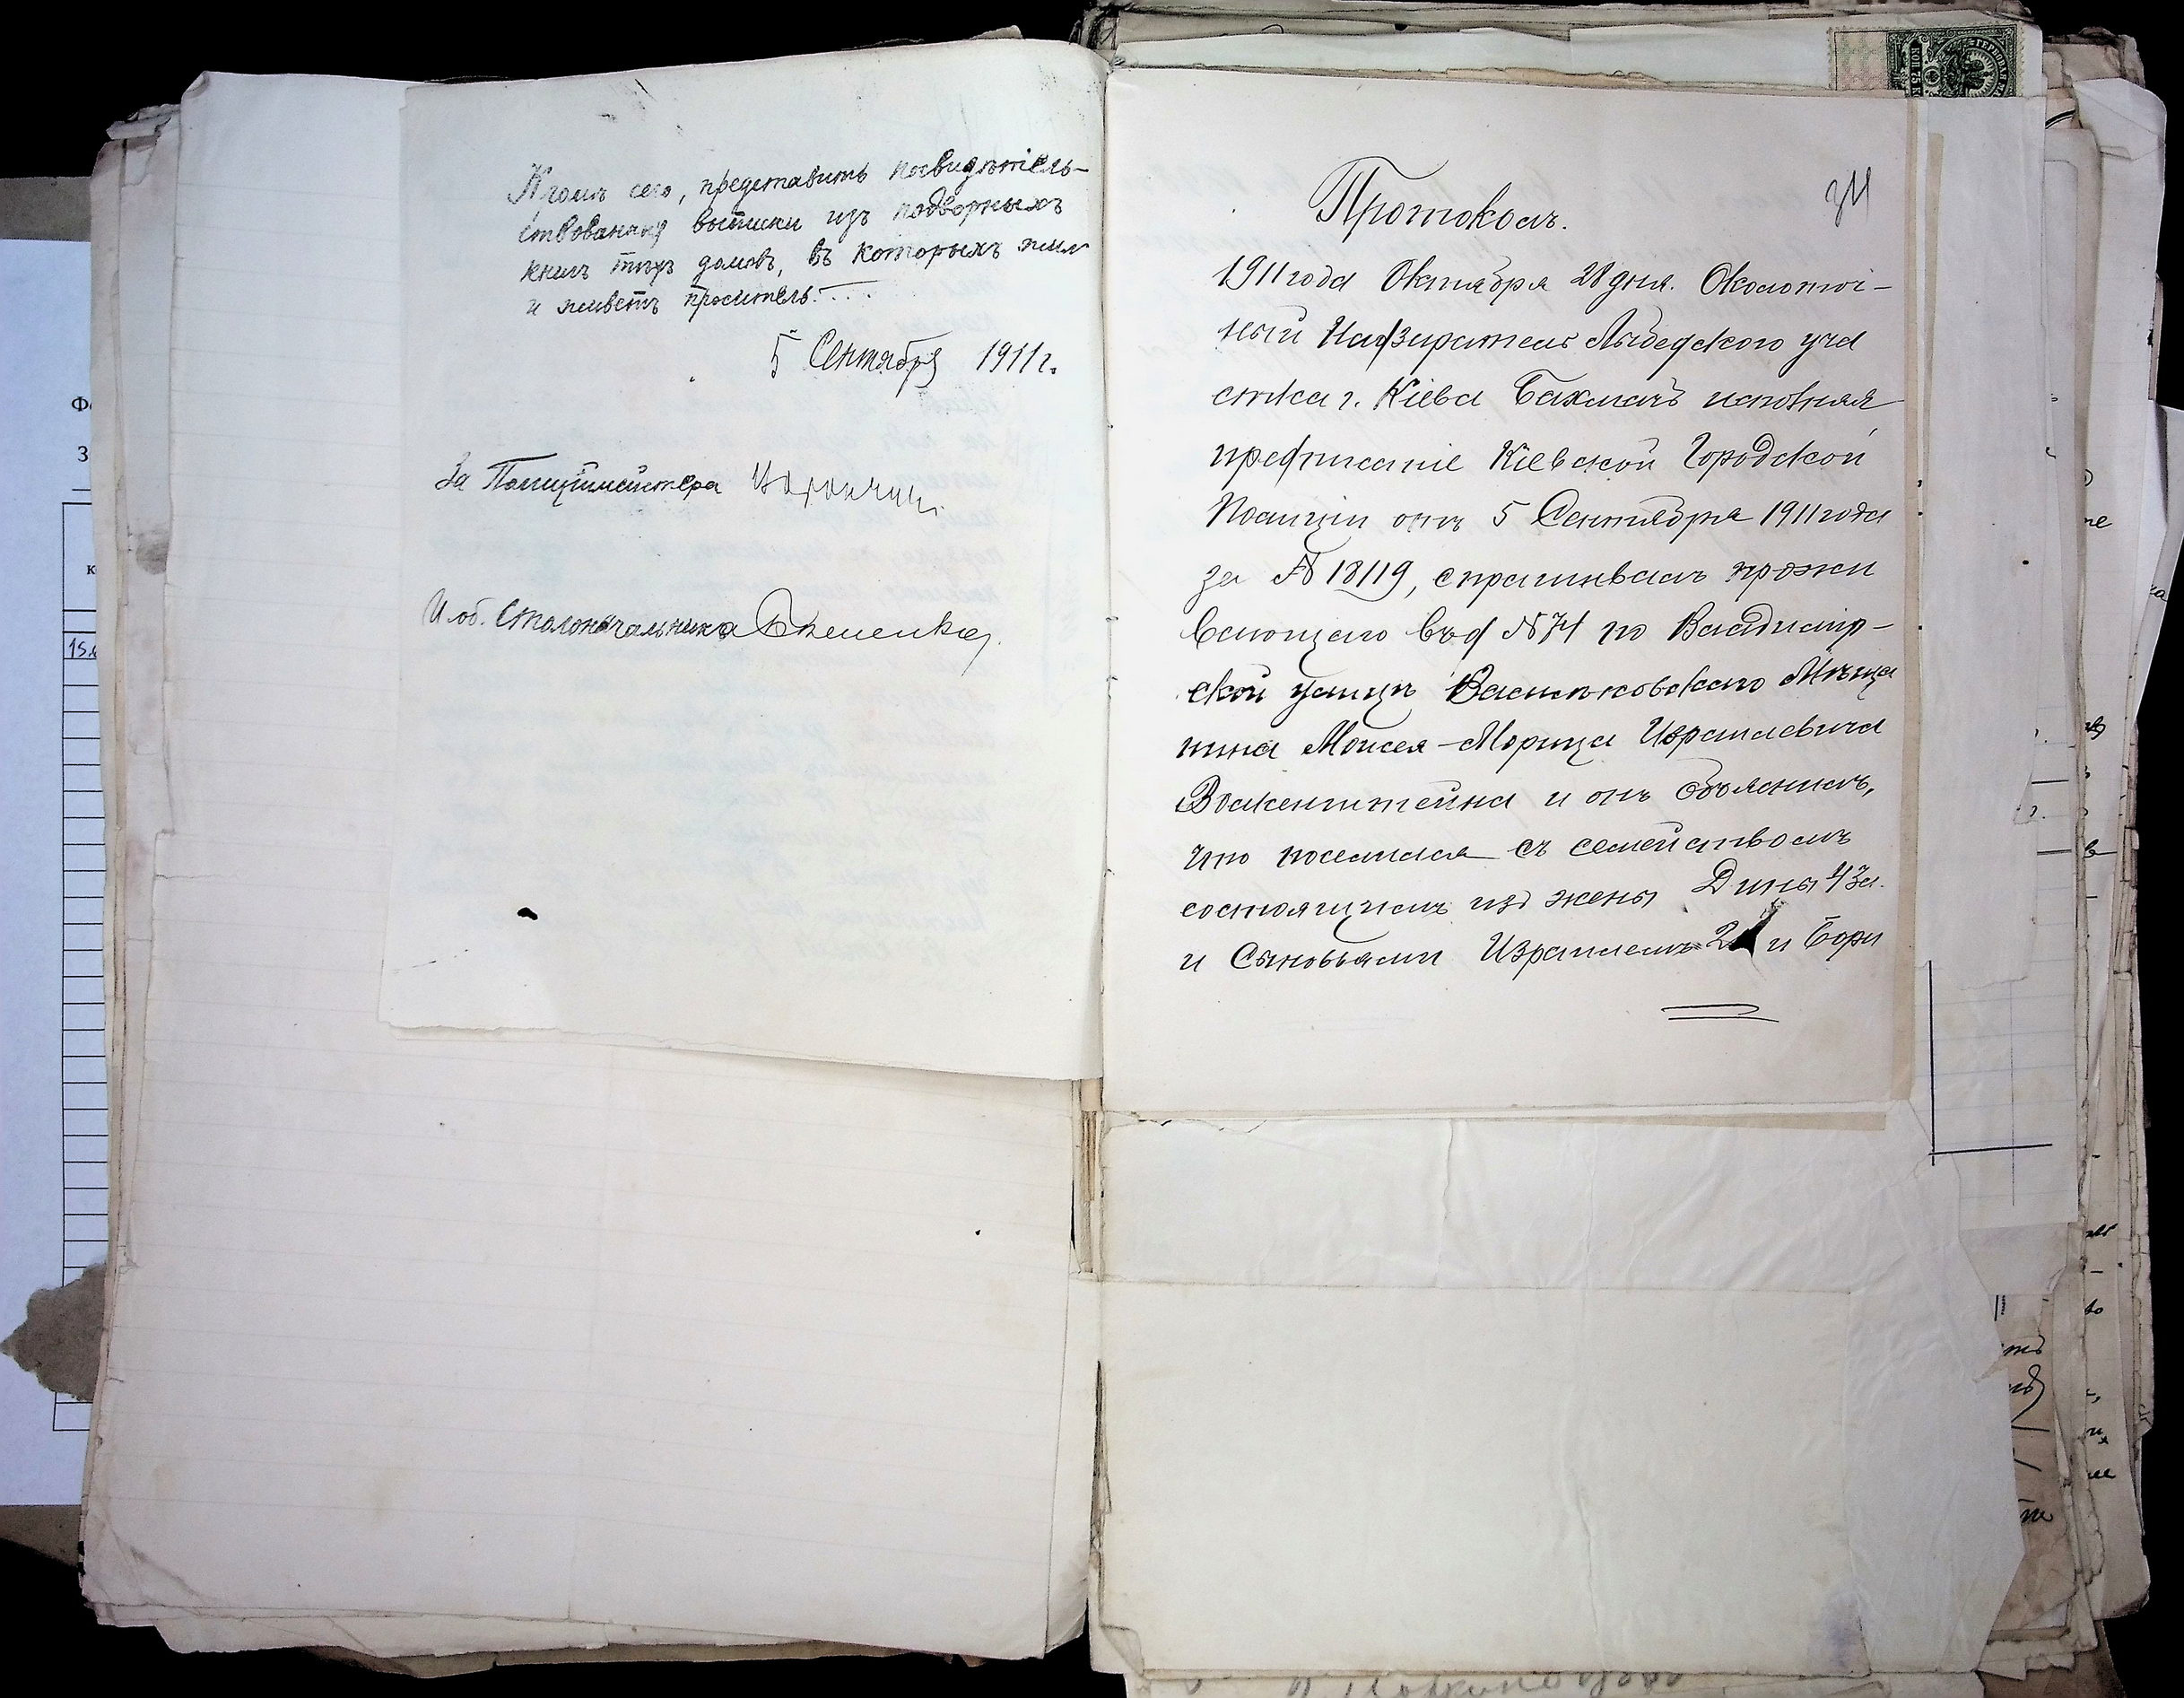 Кромѣ сего, представить посвидѣтель-
ствованныя выписки изъ подворныхъ
книгъ тѣхъ домовъ, въ которыхъ жилъ
и живетъ проситель.
5 Сентября 1911 г.
За Полиціймейстера
И об. Столоначальника
Протоколъ.
1911 года Октября 28 дня. Околоточ-
ный Надзиратель Лыбедского уча
стка г. Кіева Бахмачъ исполняя
предписаніе Кіевской Городской
Полиціи отъ 5 Сентября 1911 года
за № 18119, спрашивалъ прожи
вающаго въ д № 74 по Владимір-
ской улицѣ Васильковскаго Мѣща
нина Моисея-Морица Израилевича
Волкенштейна и онъ объяснилъ,
что поселился съ семействомъ
состоящимъ изъ жены Дины 43 л.
и Сыновьями Израилемъ и Бори